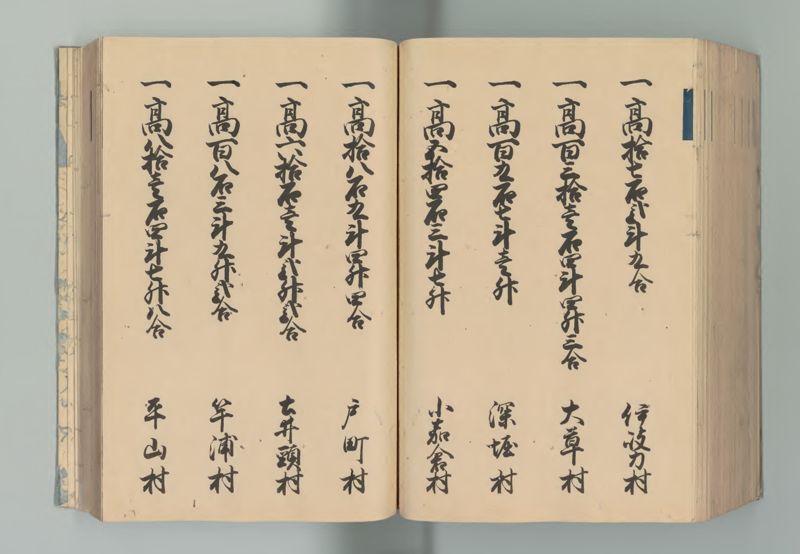 一高拾七石弐斗九合 伊王力村
一高百三拾壱石四斗四升三合 大草村
一高百九石七斗壱升 深堀村
一高五拾四石三斗七升 小加倉村
一高拾八石九斗四升四合 戸町村
一高六拾石壱斗弐升弐合 土井頭村
一高百八石三斗九升弐合 竿浦村
一高八拾壱石四斗七升八合 平山村